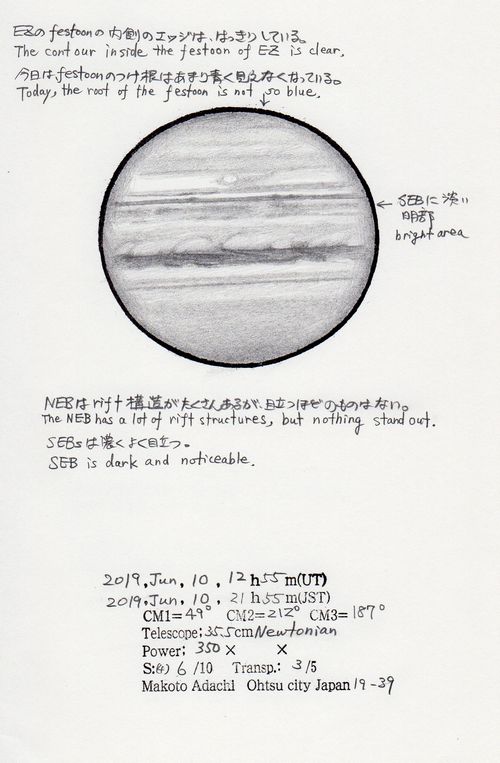 EZのfestoonの内側のエッジは、はっきりしている。
The contour inside the festoon of EZ is clear.
今日はfestoonのつけ根はあまり青く見えなくなっている。
Today, the root of the festoon is not so blue.
← SEBに淡い
明部
bright area
NEBはrift構造がたくさんあるが、目立つほどのものはない。
The NEB has a lot of rift structures, but nothing stand out.
SEBsは濃くよく目立つ。
SEB is dark and noticeable.
2019, Jun, 10, 12h55m(UT)
2019, Jun, 10, 21h55m(JST)
CM1=49° CM2=212° CM3=187°
Telescope: 35.5cm Newtonian
Power: 350× ×
S: 6/10 Transp.: 3/5
Makoto Adachi Ohtsu city Japan 19-39